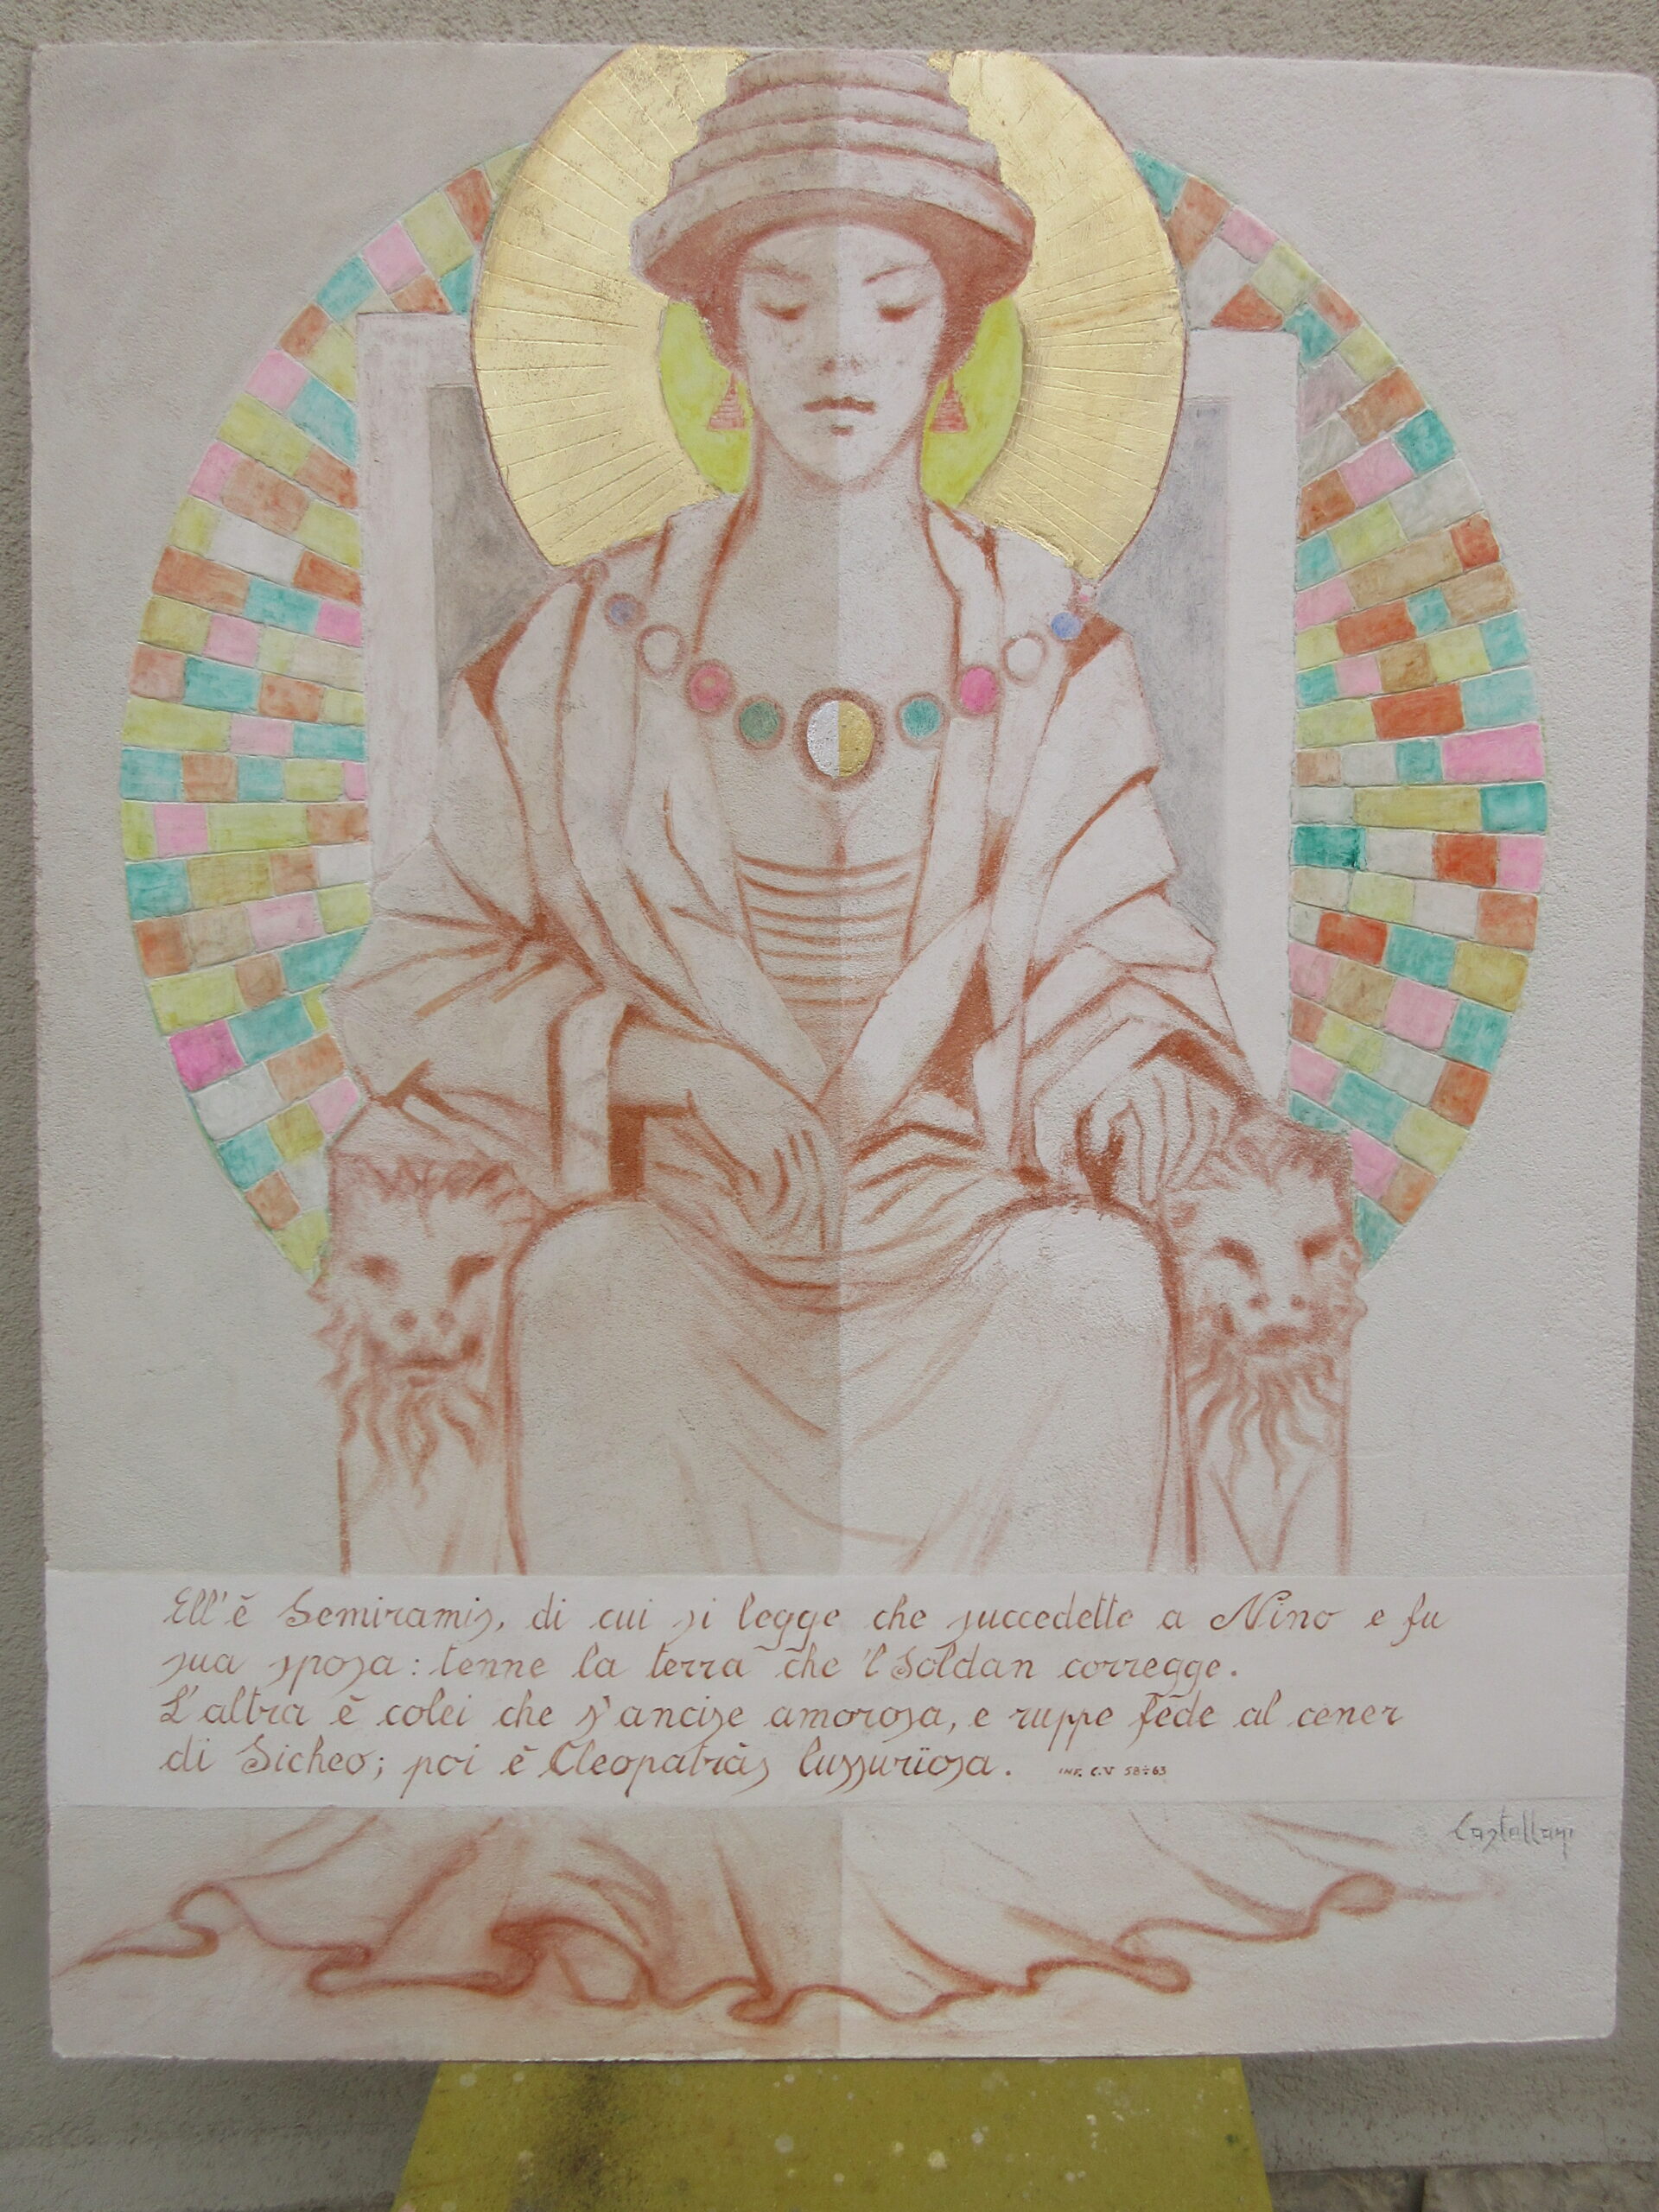 Ell'è Semiramis, di cui si legge che succedette a Nino e fu
sua sposa: tenne la terra che 'l Soldan corregge.
L'altra è colei che s'ancise amorosa, e ruppe fede al cener
di Sicheo; poi è Cleopatràs lussurïosa. INF. C.V 58÷63
Castellani